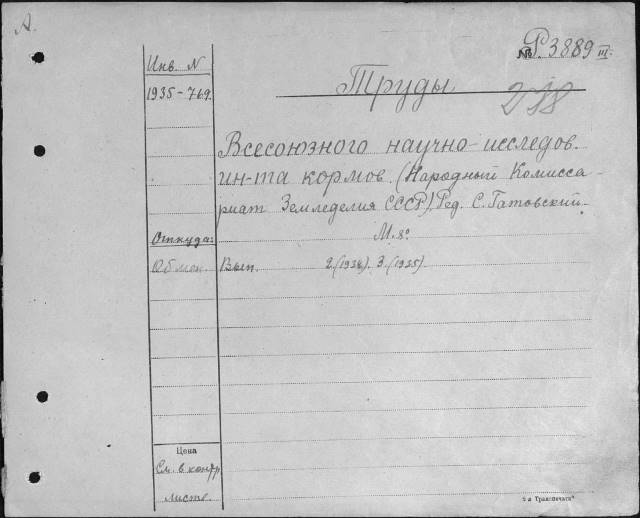 А.
№ Р. 3889 III.
Инв. N
1935-769.
Труды
218
Всесоюзного научно-исследов.
ин-та кормов. (Народный Комисса-
риат Земледелия СССР). Ред. С. Гатовский.
М. 8°
Откуда:
Обмен.
Вып. 2.(1934). 3.(1935).
Цена
См. в контр.
листе.